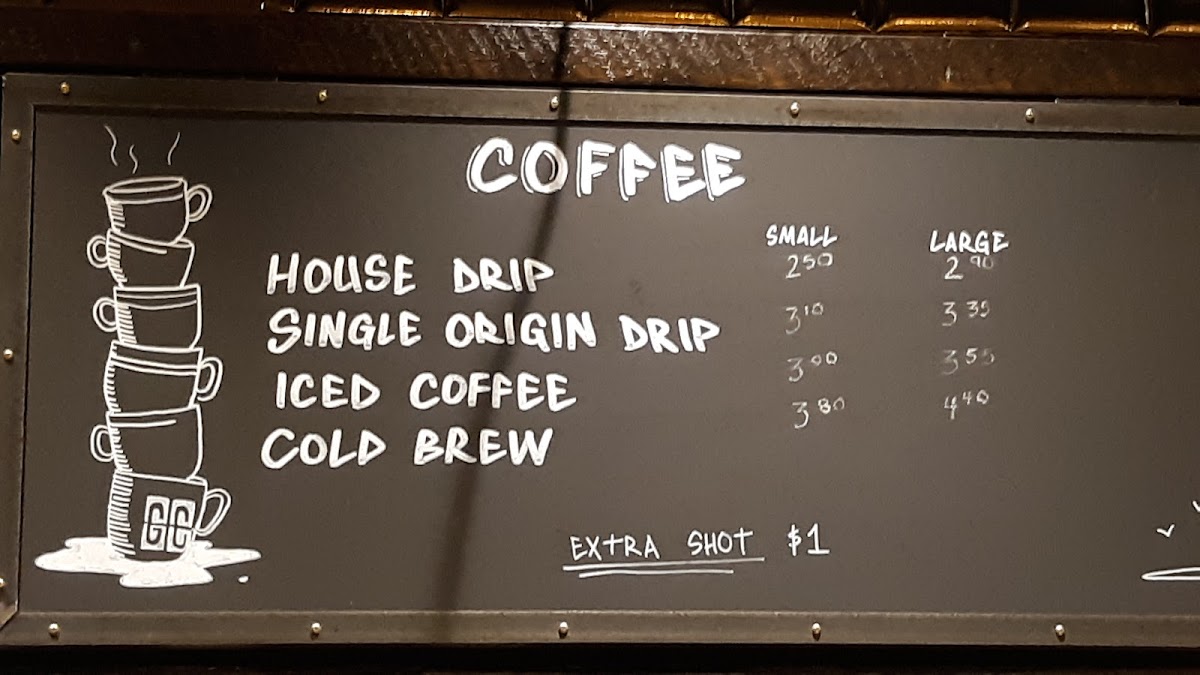 COFFEE
SMALL LARGE
HOUSE DRIP 2 50 2 90
SINGLE ORIGIN DRIP 3 10 3 35
ICED COFFEE 3 00 3 55
COLD BREW 3 80 4 40
EXTRA SHOT $1
GC